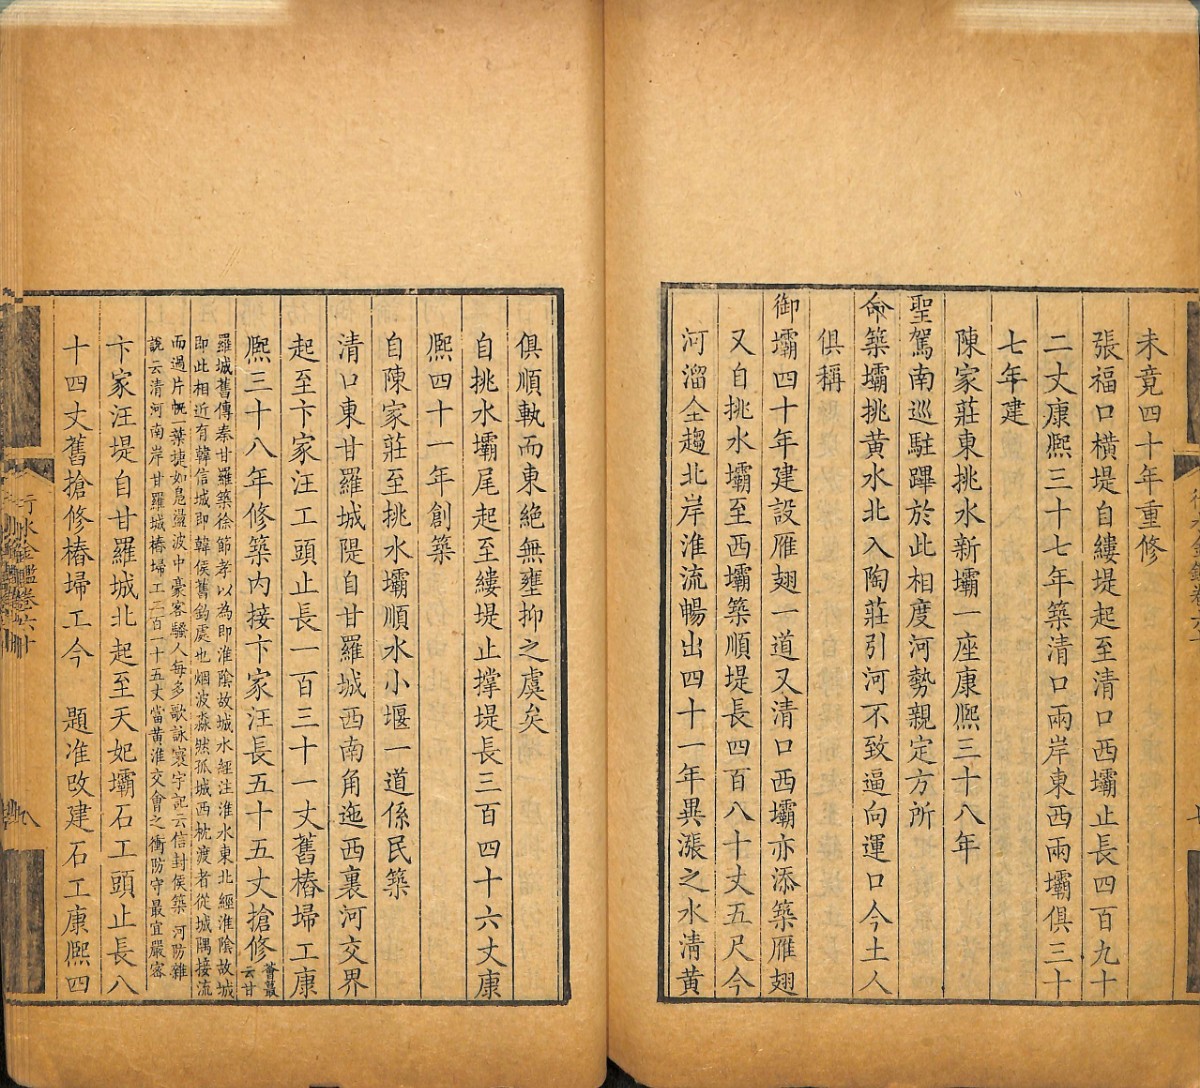 未竟四十年重修
張福口橫堤自縷堤起至清口西壩止長四百九十
二丈康熙三十七年築清口兩岸東西兩壩俱三十
七年建
陳家莊東挑水新壩一座康熙三十八年
聖駕南巡駐蹕於此相度河勢親定方所
命築壩挑黃水北入陶莊引河不致逼向運口今土人
俱稱
御壩四十年建設雁翅一道又清口西壩亦添築雁翅
又自挑水壩至西壩築順堤長四百八十丈五尺今
河溜全趨北岸淮流暢出四十一年異漲之水清黃
俱順軌而東絕無壅抑之虞矣
自挑水壩尾起至縷堤止撐堤長三百四十六丈康
熙四十一年創築
自陳家莊至挑水壩順水小堰一道係民築
清口東甘羅城隄自甘羅城西南角迤西裏河交界
起至卞家汪工頭止長一百三十一丈舊樁埽工康
熙三十八年修築內接卞家汪長五十五丈搶修薈蕞云甘
羅城舊傳秦甘羅築徐節孝以為即淮陰故城水經注淮水東北經淮陰故城
即此相近有韓信城即韓侯舊釣處也烟波淼然孤城西枕渡者從城隅接流
而過片帆一葉捷如鳧盪波中豪客騷人每多歌詠寰宇記云信封侯築 河防雜
說云清河南岸甘羅城樁埽工二百一十五丈當黃淮交會之衝防守最宜嚴密
卞家汪堤自甘羅城北起至天妃壩石工頭止長八
十四丈舊搶修樁埽工今 題准改建石工康熙四
行水金鑑卷六十
八